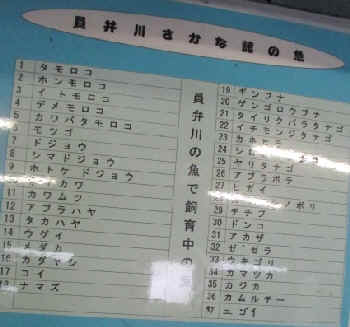 員弁川さかな館の魚
員弁川の魚で飼育中の
1 タモロコ
2 ホンモロコ
3 イトモロコ
4 デメモロコ
5 カワバタモロコ
6 モツゴ
7 ドジョウ
8 シマドジョウ
9 ホトケドジョウ
カワ
11 カワムツ
12 アブラハヤ
13 タカハヤ
14 ウグイ
15 メダカ
16 カダヤシ
17 コイ
ナマズ
19 ギンブナ
20 ゲンゴロウブナ
21 タイリクバラタナゴ
22 イチモンジタナゴ
23 カネヒラ
24 シロ
25 ヤリタナゴ
26 アブラボテ
27 ヒガイ
ノボリ
29 チチブ
30 ドンコ
31 アカザ
32 ゼゼラ
33 ウキゴリ
34 カマツカ
35 カジカ
36 カムルチー
37 ニゴイ